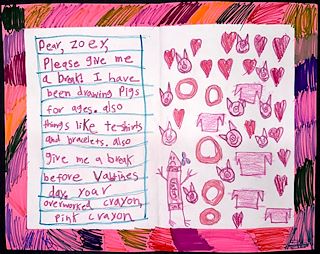 Dear, zoey,
Please give me
a break! I have
been drawing Pigs
for ages. also
things like te-shirts
and bracelets. also
give me a break
before Valtines
day. your
overworked crayon,
pink crayon